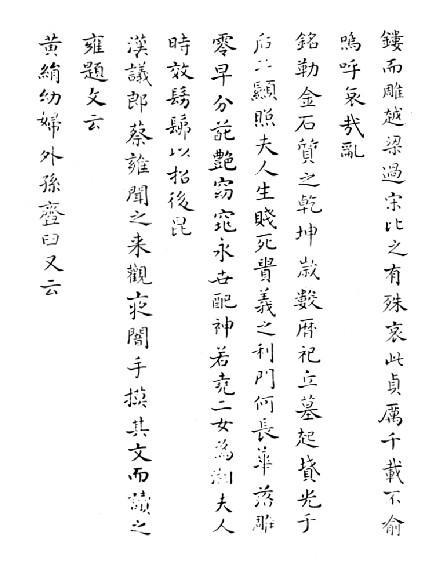 鏤而雕越梁過宋比之有殊哀此貞厲千載不渝
嗚呼哀哉亂
銘勒金石質之乾坤歲數曆祀立墓起墳光于
后土顯照夫人生賤死貴義之利門何長華落雕
零早分葩艷窈窕永世配神若堯二女為湘夫人
時效髣髴以招後昆
漢議郎蔡雍聞之来觀夜闇手摸其文而讀之
雍題文云
黃絹幼婦外孫齏臼又云